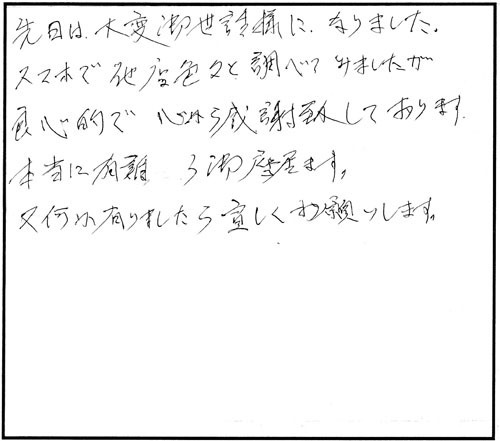 先日は、大変御世話様に、なりました。
スマホで他店色々と調べてみましたが
良心的で 心から感謝致しております。
本当に有難 う御座居ます。
又何か有りましたら宜しくお願いします。